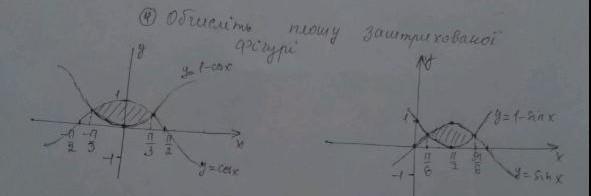 ④ Обчисліть площу заштрихованої
фігурі
y
y=1-cosx
1
-π/2 -π/3 π/3 π/2 x
-1
y=cosx
y
1
y=1-sinx
π/6 π/2 5π/6 x
-1
y=sinx